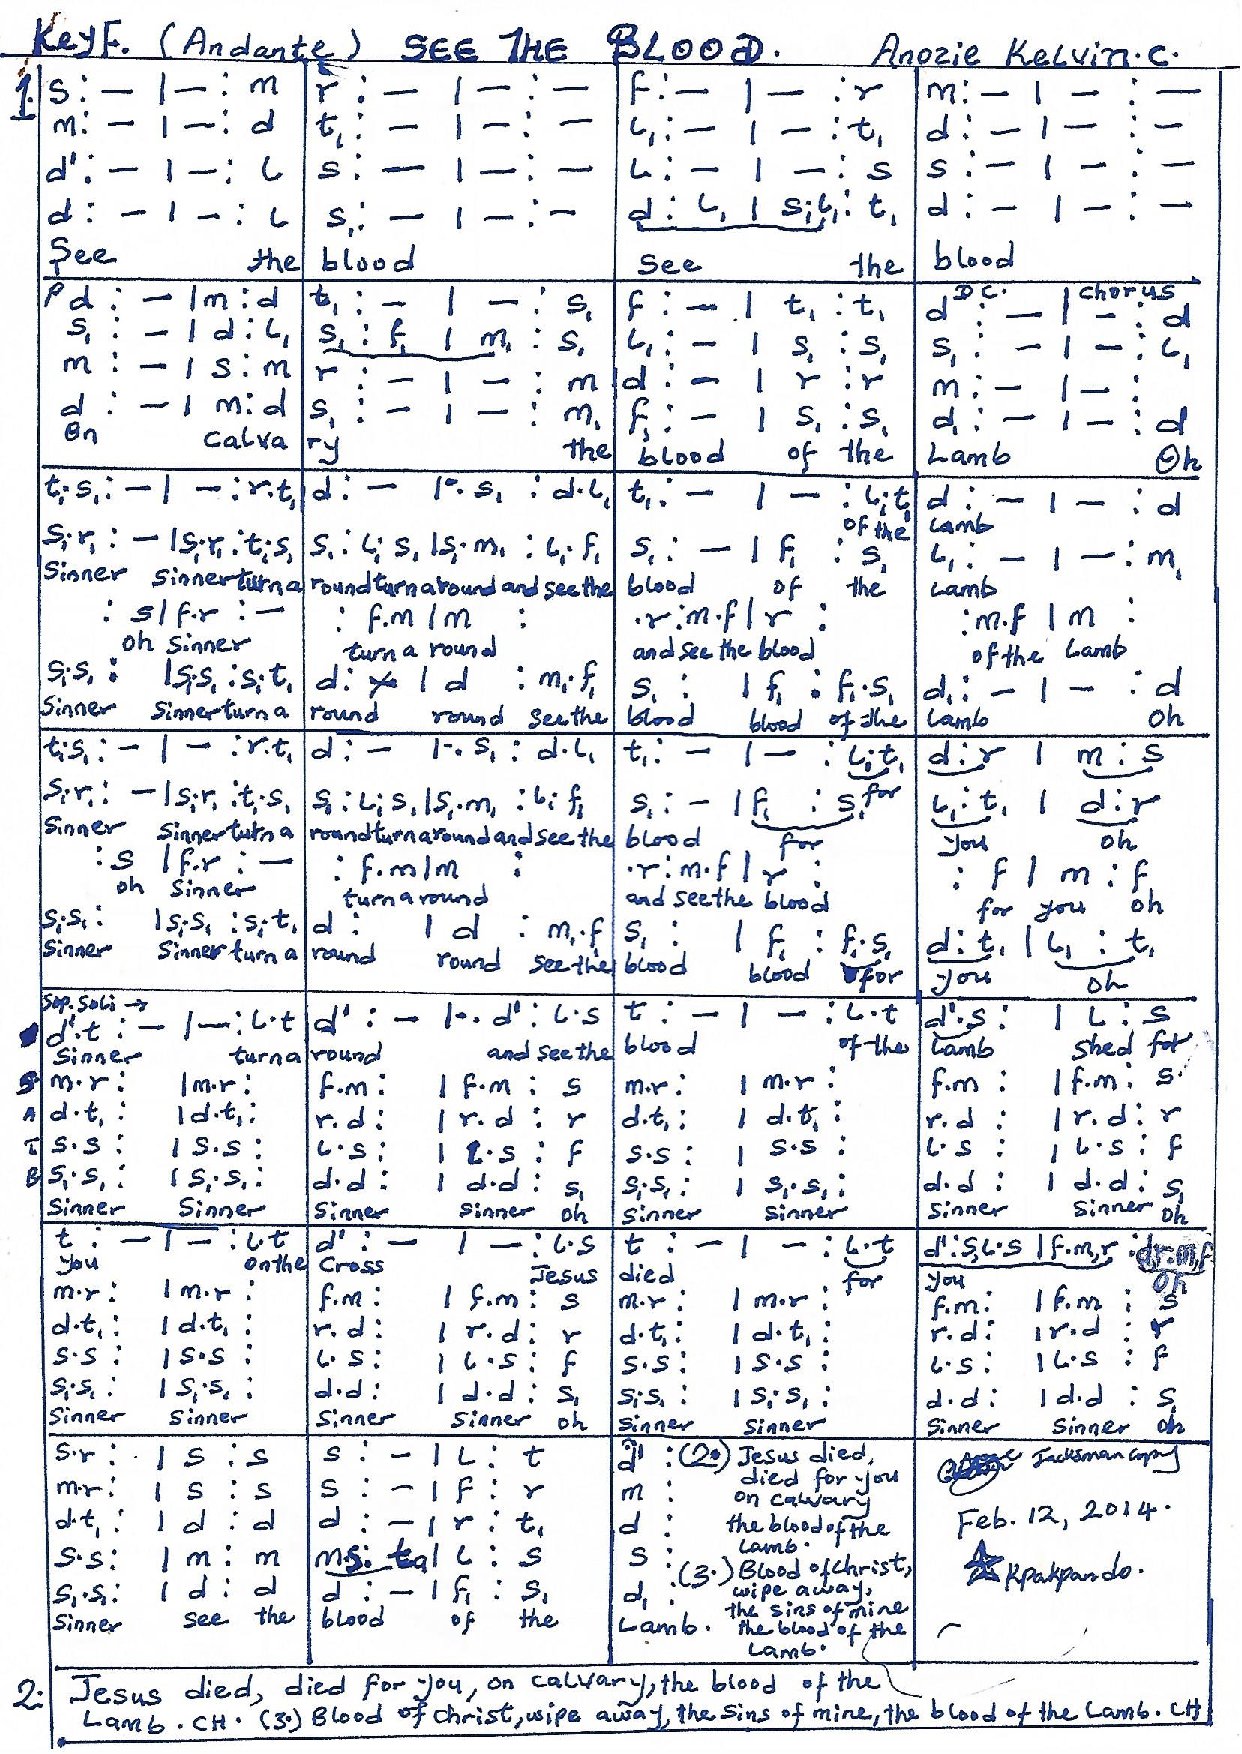 Key F. (Andante) SEE THE BLOOD. Anozie Kelvin.C.
1. s : – | – : m | r : – | – : – | f : – | – : r | m : – | – : –
m : – | – : d | t₁ : – | – : – | l₁ : – | – : t₁ | d : – | – : –
d' : – | – : l | s : – | – : – | l : – | – : s | s : – | – : –
d : – | – : l | s₁ : – | – : – | d : l₁ | s₁.l₁ : t₁ | d : – | – : –
See the blood See the blood
D.C. Chorus
P d : – | m : d | t₁ : – | – : s₁ | f : – | t₁ : t₁ | d : – | – : d
s₁ : – | d : l₁ | s₁ : f₁ | m₁ : s₁ | l₁ : – | s₁ : s₁ | s₁ : – | – : l₁
m : – | s : m | r : – | – : m | d : – | r : r | m : – | – :
d : – | m : d | s₁ : – | – : m₁ | f₁ : – | s₁ : s₁ | d₁ : – | – : d
On calva ry the blood of the Lamb Oh
t₁.s₁ : – | – : r.t₁ | d : – | –. s₁ : d.l₁ | t₁ : – | – : l₁.t₁ | d : – | – : d
of the Lamb
s₁.r₁ : – | s₁.r₁ : t₁.s₁ | s₁ : l₁.s₁ | s₁.m₁ : l₁.f₁ | s₁ : – | f₁ : s₁ | l₁ : – | – : m₁
Sinner Sinner turn a round turn around and see the blood of the Lamb
: s | f.r : – | : f.m | m : | .r : m.f | r : | : m.f | m :
oh Sinner turn a round and see the blood of the Lamb
s₁.s₁ : | s₁.s₁ : s₁.t₁ | d : | d : m₁.f₁ | s₁ : | f₁ : f₁.s₁ | d₁ : – | – : d
Sinner Sinner turn a round round see the blood blood of the Lamb Oh
t₁.s₁ : – | – : r.t₁ | d : – | –. s₁ : d.l₁ | t₁ : – | – : l₁.t₁ | d : r | m : s
for
s₁.r₁ : – | s₁.r₁ : t₁.s₁ | s₁ : l₁.s₁ | s₁.m₁ : l₁.f₁ | s₁ : – | f₁ : s₁ | l₁ : t₁ | d : r
Sinner Sinner turn a round turn around and see the blood for you oh
: s | f.r : – | : f.m | m : | .r : m.f | r : | : f | m : f
oh Sinner turn a round and see the blood for you oh
s₁.s₁ : | s₁.s₁ : s₁.t₁ | d : | d : m₁.f | s₁ : | f₁ : f₁.s₁ | d : t₁ | l₁ : t₁
Sinner Sinner turn a round round see the blood blood for you oh
Sop. Soli →
d'.t : – | – : l.t | d' : – | –. d' : l.s | t : – | – : l.t | d'.s : | l : s
Sinner turn a round and see the blood of the Lamb shed for
S m.r : | m.r : | f.m : | f.m : s | m.r : | m.r : | f.m : | f.m : s
A d.t₁ : | d.t₁ : | r.d : | r.d : r | d.t₁ : | d.t₁ : | r.d : | r.d : r
T s.s : | s.s : | l.s : | l.s : f | s.s : | s.s : | l.s : | l.s : f
B s₁.s₁ : | s₁.s₁ : | d.d : | d.d : s₁ | s₁.s₁ : | s₁.s₁ : | d.d : | d.d : s₁
Sinner Sinner Sinner Sinner oh Sinner Sinner Sinner Sinner oh
t : – | – : l.t | d' : – | – : l.s | t : – | – : l.t | d' : s,l.s | f.m,r : dr.m,f
you on the Cross Jesus died for you Oh
m.r : | m.r : | f.m : | f.m : s | m.r : | m.r : | f.m : | f.m : s
d.t₁ : | d.t₁ : | r.d : | r.d : r | d.t₁ : | d.t₁ : | r.d : | r.d : r
s.s : | s.s : | l.s : | l.s : f | s.s : | s.s : | l.s : | l.s : f
s₁.s₁ : | s₁.s₁ : | d.d : | d.d : s₁ | s₁.s₁ : | s₁.s₁ : | d.d : | d.d : s₁
Sinner Sinner Sinner Sinner oh Sinner Sinner Sinner Sinner oh
s.r : | s : s | s : – | l : t | d' :
m.r : | s : s | s : – | f : r | m :
d.t₁ : | d : d | d : – | r : t₁ | d :
s.s : | m : m | m s : ta | l : s | s :
s₁.s₁ : | d : d | d : – | f₁ : s₁ | d₁ :
Sinner see the blood of the Lamb.
(2.) Jesus died,
died for you
on calvary
the blood of the
Lamb.
(3.) Blood of christ,
wipe away,
the sins of mine
the blood of the
Lamb.
Jacksman copy
Feb. 12, 2014.
Kpakpando.
2: Jesus died, died for you, on calvary, the blood of the
Lamb. CH. (3.) Blood of christ, wipe away, the sins of mine, the blood of the Lamb. CH